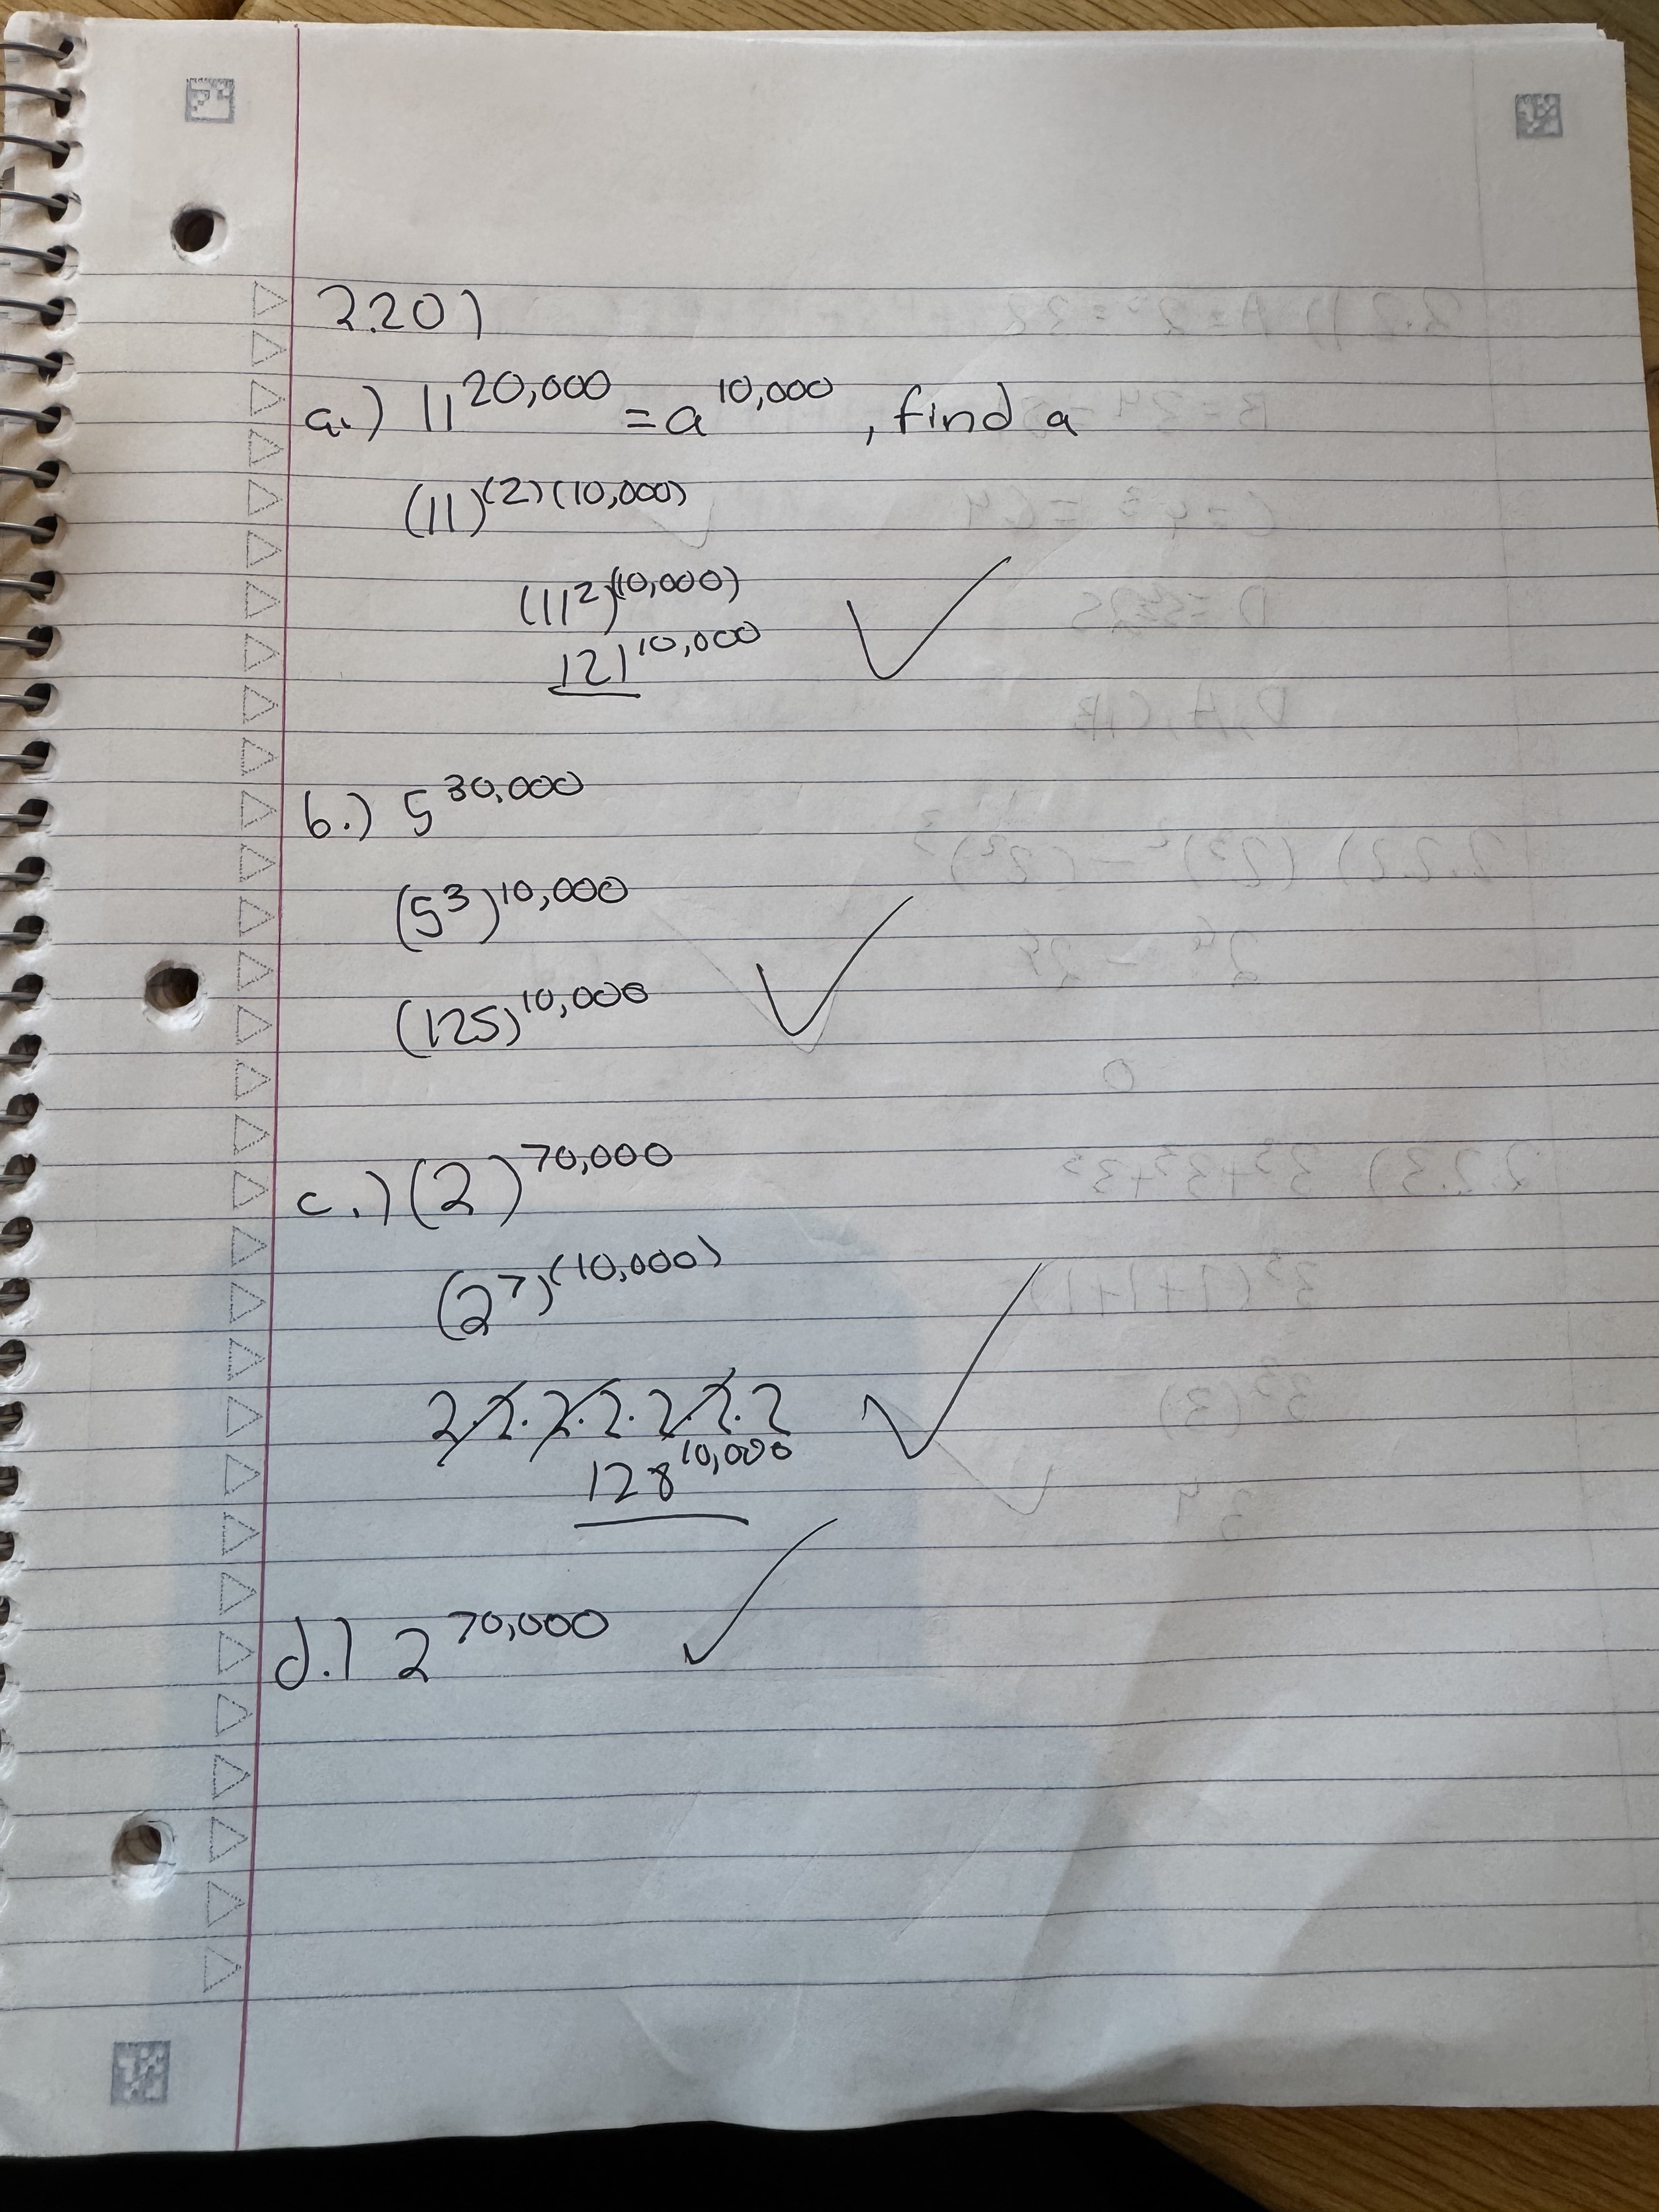 2.20)
a.) 11^20,000 = a^10,000, find a
(11)^(2)(10,000)
(11^2)^(10,000)
121^10,000
b.) 5^30,000
(5^3)^10,000
(125)^10,000
c.) (2)^70,000
(2^7)^(10,000)
2·2·2·2·2·2·2
128^10,000
d.) 2^70,000